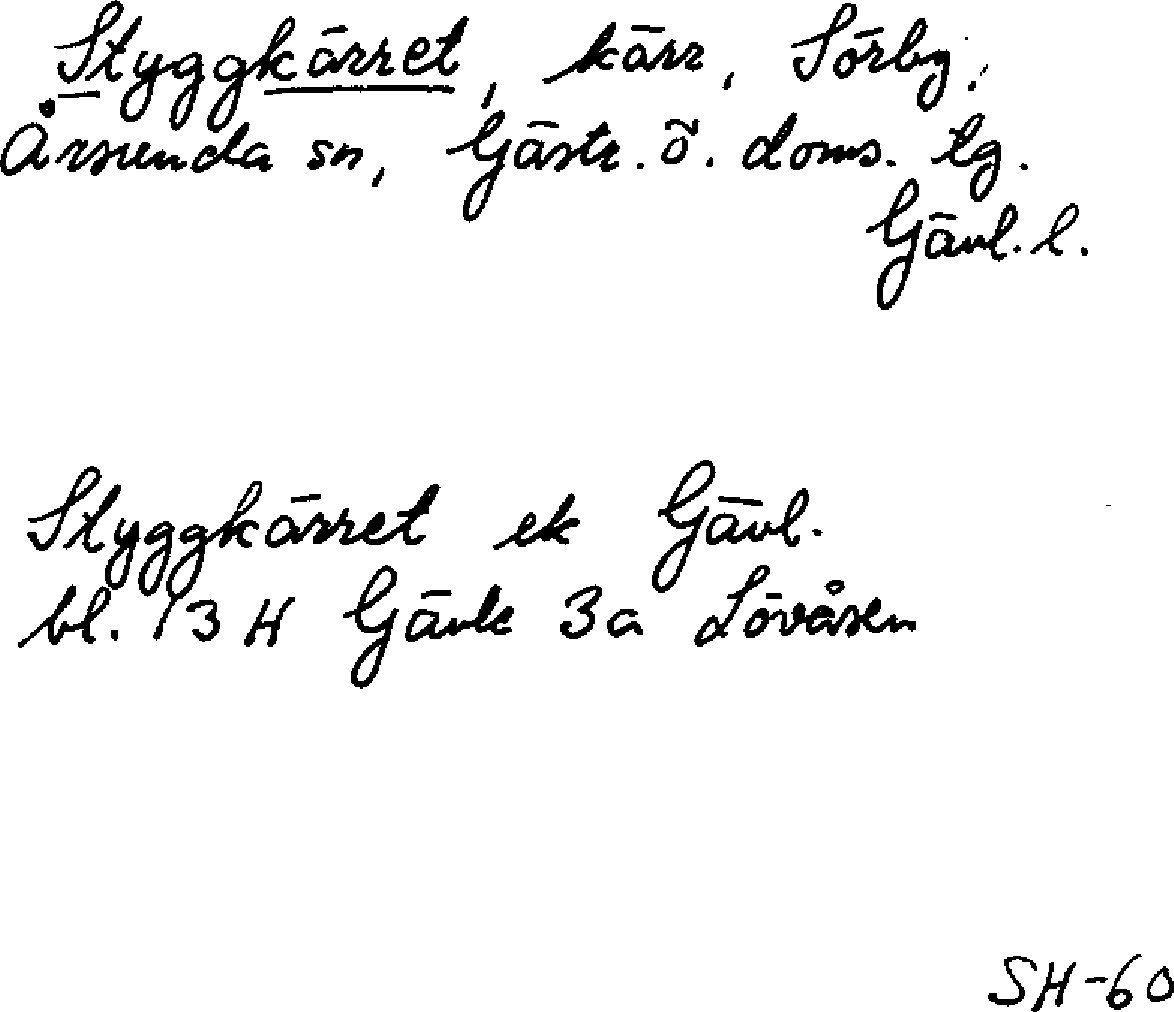 Styggkärret, kärr, Sörby,
Årsunda sn, Gästr. ö. doms. tg.
Gävl. l.
Styggkärret ek Gävl.
bl. 13 H Gävle 3a Lövåsen
SH-60